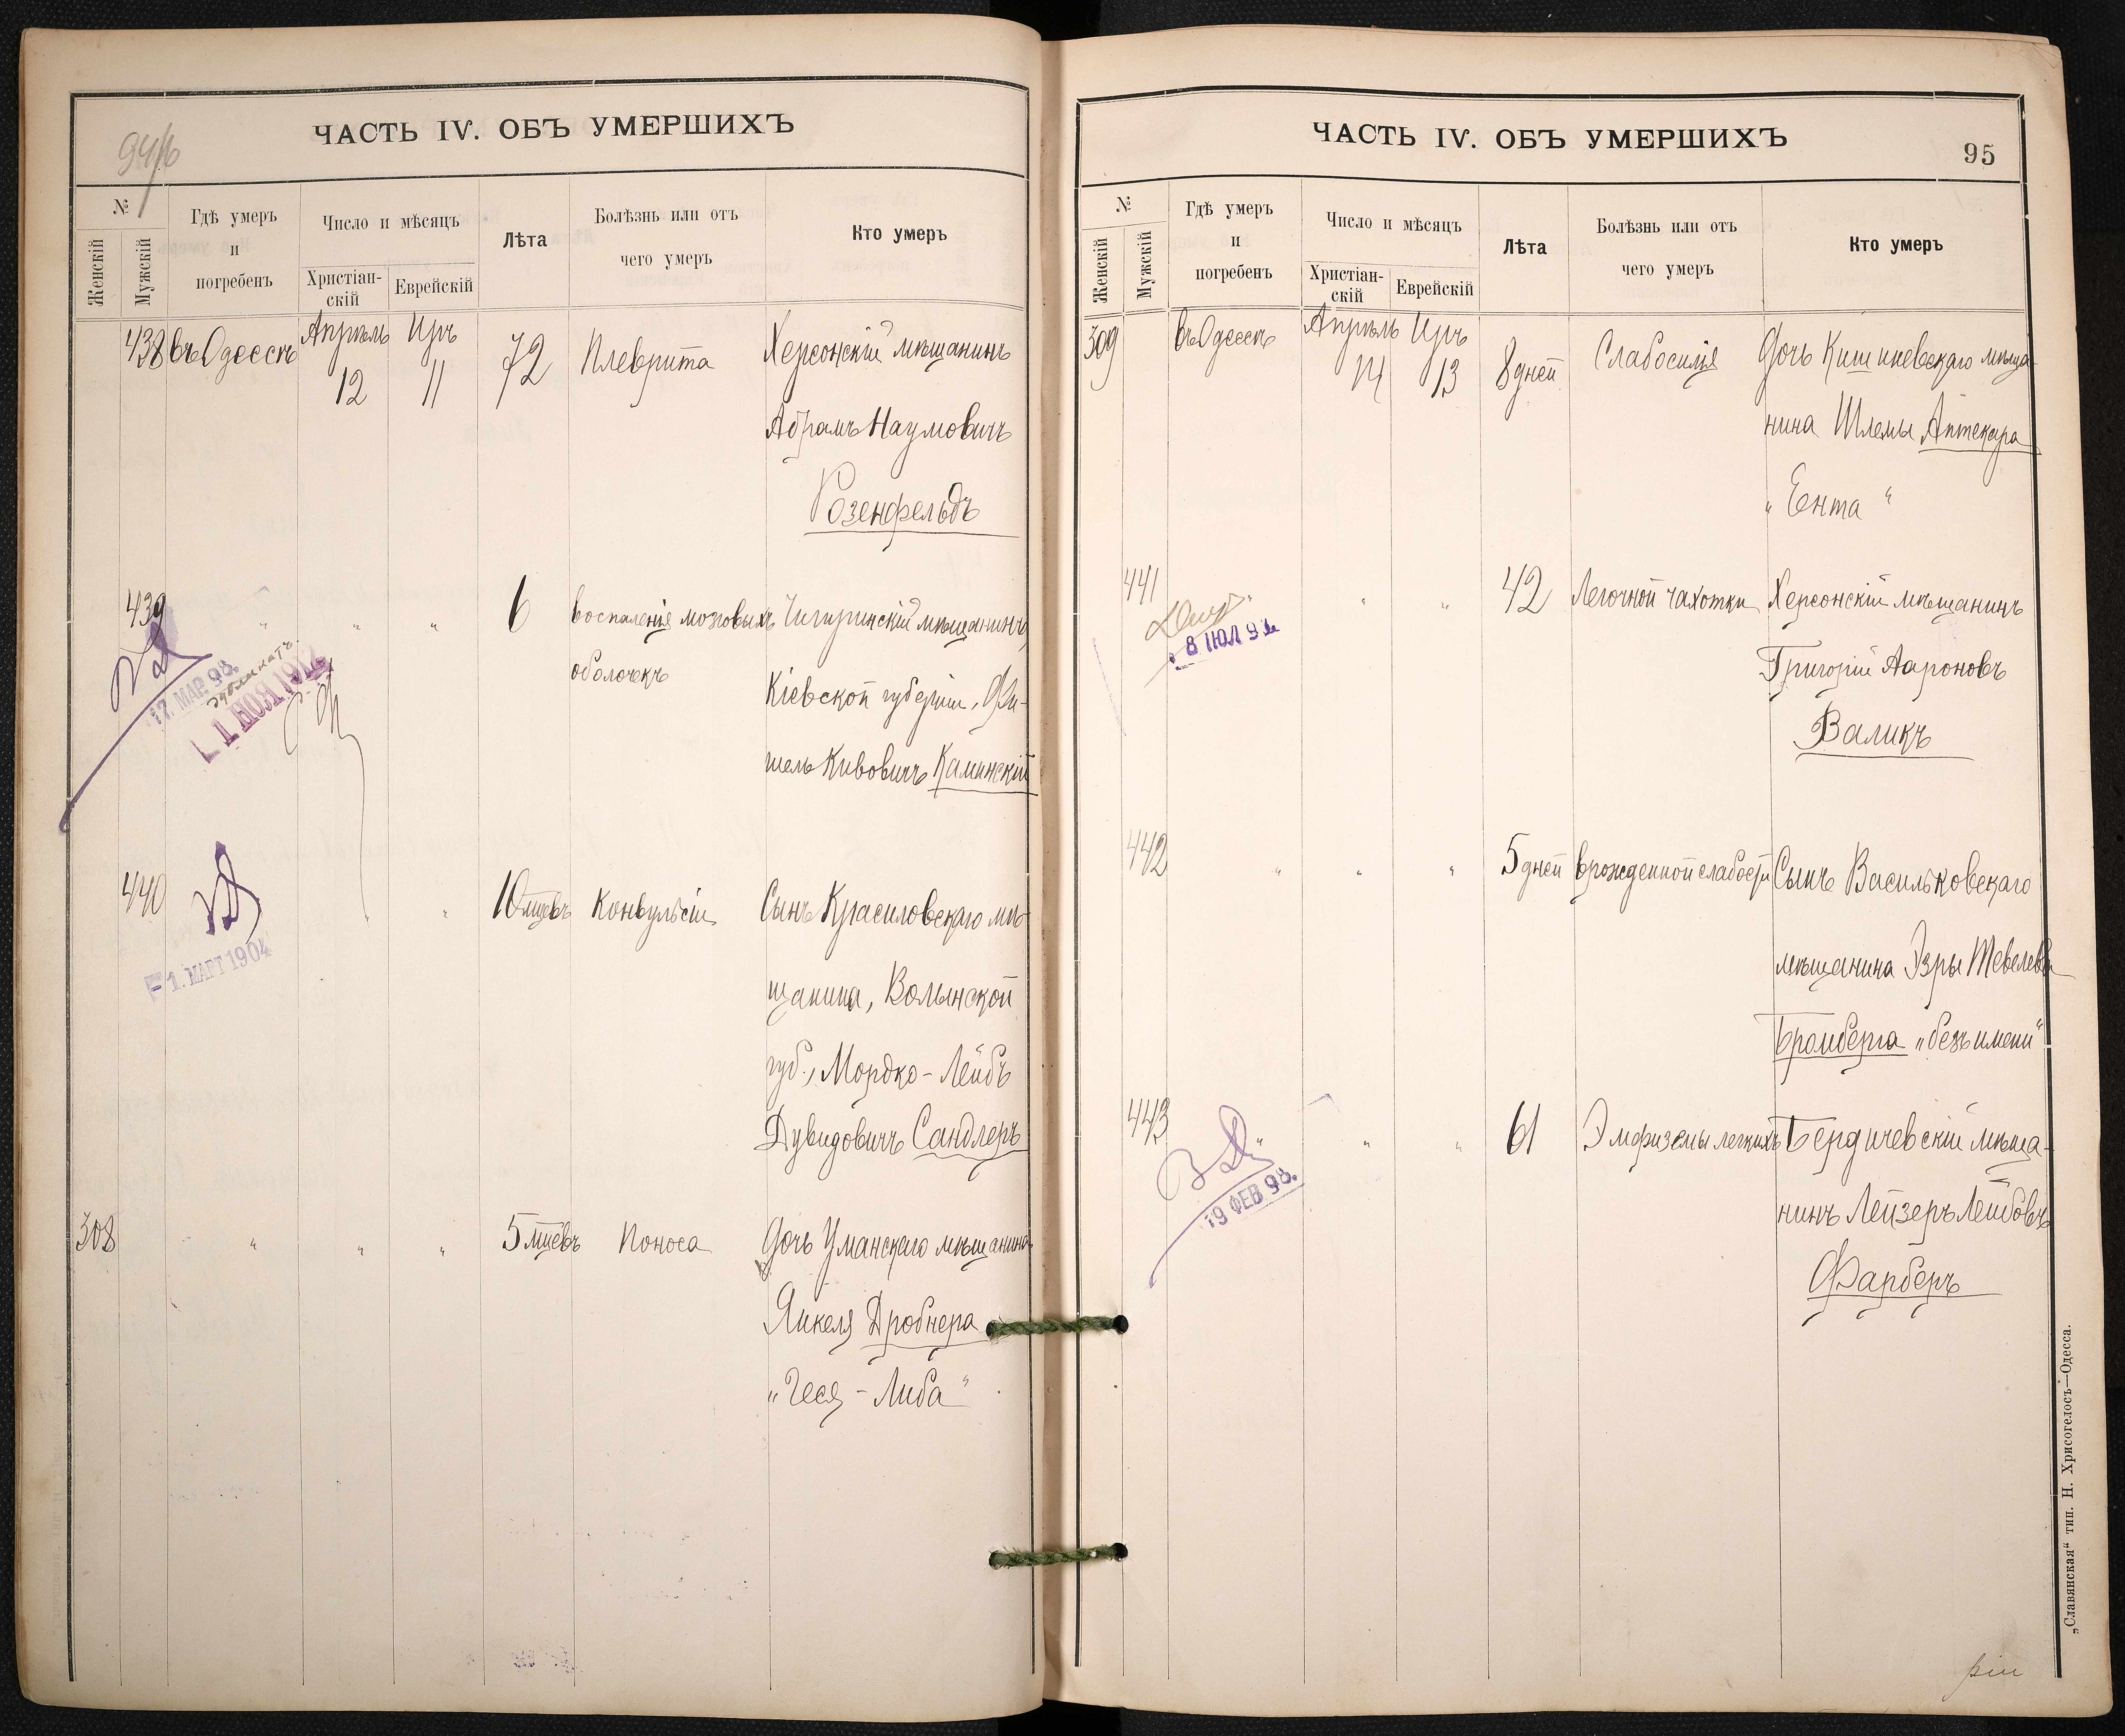 94/б
ЧАСТЬ IV. ОБЪ УМЕРШИХЪ
№
Женскій
Мужскій
Гдѣ умеръ
и
погребенъ
Число и мѣсяцъ
Христіан-
скій
Еврейскій
Лѣта
Болѣзнь или отъ
чего умеръ
Кто умеръ
438 въ Одессѣ Апрѣль Иръ 72 Плеврита Херсонскій мѣщанинъ
12 11
Абрамъ Наумовичъ
Розенфельдъ
439 " " " 6 воспаленія мозговыхъ Чигиринскій мѣщанинъ,
оболочекъ Кіевской губерніи, Фи-
шель Кивовичъ Каминскій
17. МАР. 98.
дубликатъ
1 НОЯ 1912
440 " " 10 мцевъ Конвульсіи Сынъ Красиловскаго мѣ-
щанина, Волынской
губ., Мордко-Лейбъ
Дувидовичъ Сандлеръ
1. МАРТ 1904
308 " " " 5 мцевъ Поноса Дочь Уманскаго мѣщанина
Янкеля Дробнера
„Геся-Либа"
ЧАСТЬ IV. ОБЪ УМЕРШИХЪ
95
№
Женскій
Мужскій
Гдѣ умеръ
и
погребенъ
Число и мѣсяцъ
Христіан-
скій
Еврейскій
Лѣта
Болѣзнь или отъ
чего умеръ
Кто умеръ
309 въ Одессѣ Апрѣль Иръ 8 дней Слабосилія Дочь Кишиневскаго мѣща-
14 13
нина Шлемы Аптекаря
„Ента"
441 " " " 42 Легочной чахотки Херсонскій мѣщанинъ
Григорій Аароновъ
Валикъ
8 ІЮЛ 9
442 " " " 5 дней врожденной слабости Сынъ Васильковскаго
мѣщанина Эзры Тевелева
Бромберга „безъ имени"
443 " " " 61 Эмфиземы легкихъ Бердичевскій мѣща-
нинъ Лейзеръ Лейбовъ
Фарберъ
19 ФЕВ 98.
„Славянская" тип. Н. Хрисогелосъ—Одесса.